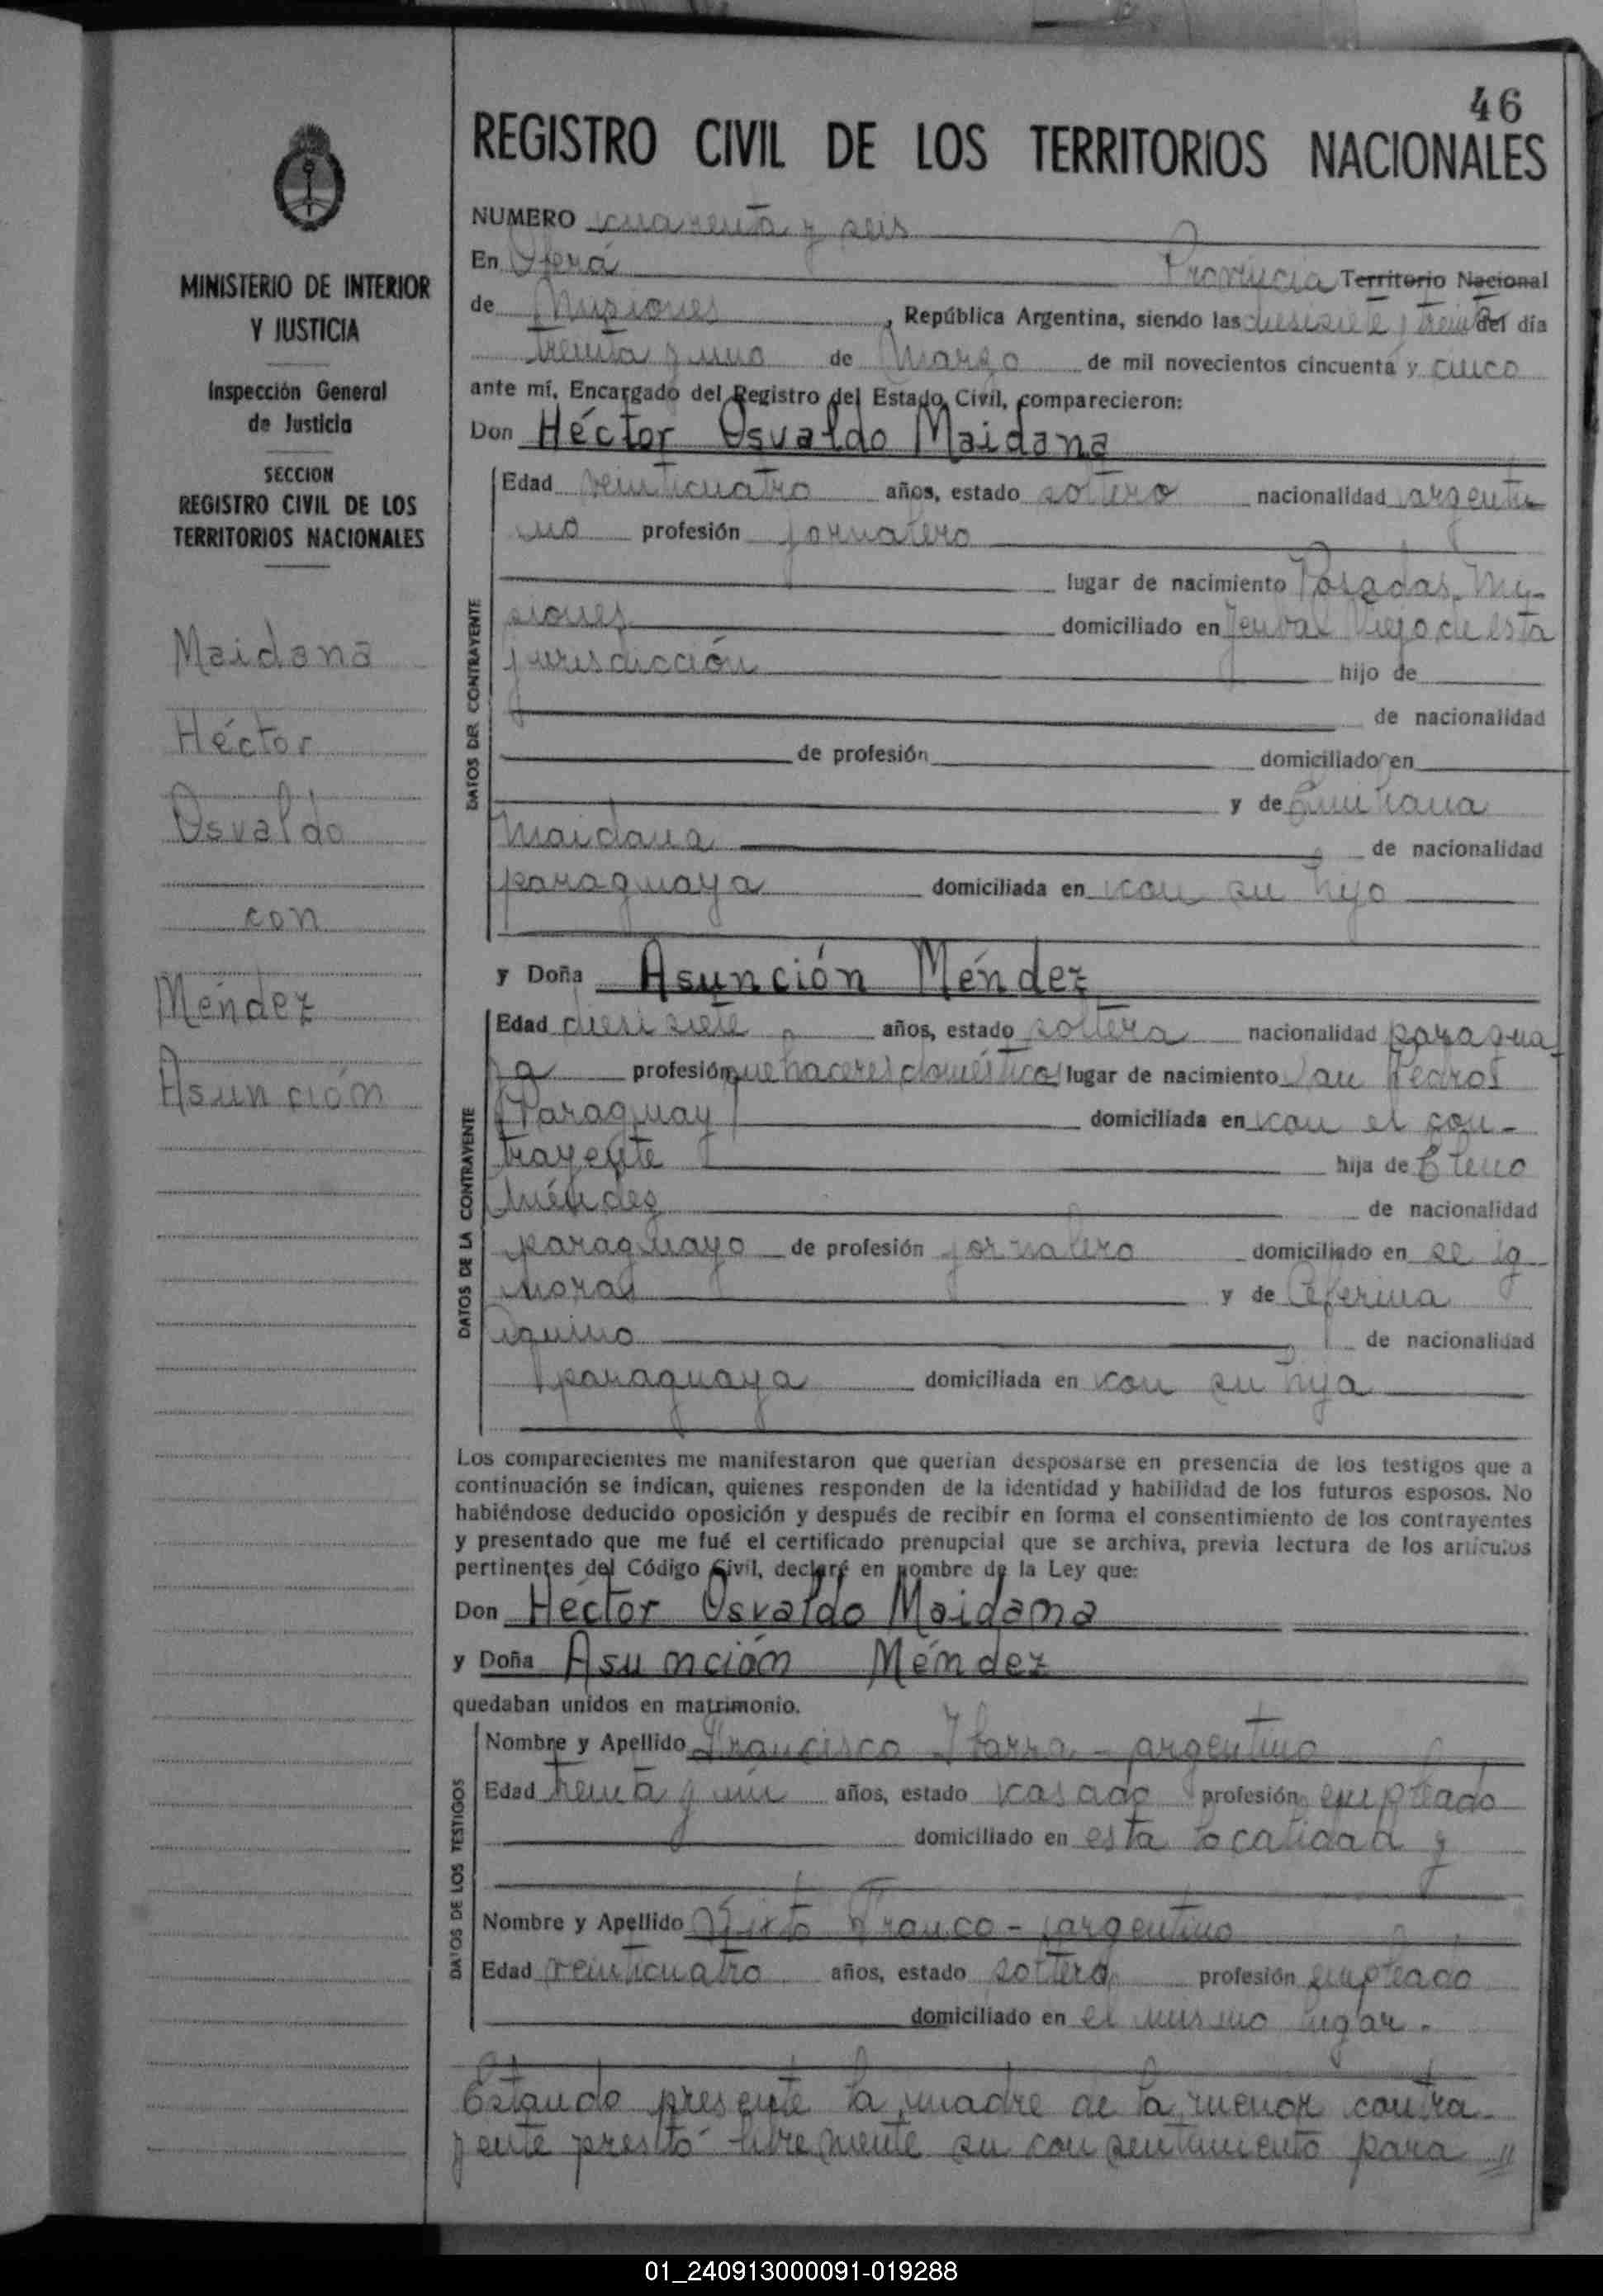 46
REGISTRO CIVIL DE LOS TERRITORIOS NACIONALES
MINISTERIO DE INTERIOR
Y JUSTICIA
Inspección General
de Justicia
SECCION
REGISTRO CIVIL DE LOS
TERRITORIOS NACIONALES
Maidana
Héctor
Osvaldo
con
Méndez
Asunción
NUMERO cuarenta y seis
En Oberá Provincia Territorio Nacional
de Misiones, República Argentina, siendo las diesisiete y treinta del día
treinta y uno de Marzo de mil novecientos cincuenta y cinco
ante mí, Encargado del Registro del Estado Civil, comparecieron:
Don Héctor Osvaldo Maidana
DATOS DEL CONTRAYENTE
Edad veinticuatro años, estado soltero nacionalidad argenti
no profesión jornalero
lugar de nacimiento Posadas, Mi-
siones domiciliado en Yerbal Viejo de esta
jurisdicción hijo de
de nacionalidad
de profesión domiciliado en
y de Emiliana
Maidana de nacionalidad
paraguaya domiciliada en con su hijo
y Doña Asunción Méndez
DATOS DE LA CONTRAYENTE
Edad diesisiete años, estado soltera nacionalidad paragua
ya profesión quehaceres domésticos lugar de nacimiento San Pedro
Paraguay domiciliada en con el con-
trayente hija de Eleno
Méndez de nacionalidad
paraguayo de profesión jornalero domiciliado en se ig
nora y de Ceferina
Aquino de nacionalidad
paraguaya domiciliada en con su hija
Los comparecientes me manifestaron que querían desposarse en presencia de los testigos que a
continuación se indican, quienes responden de la identidad y habilidad de los futuros esposos. No
habiéndose deducido oposición y después de recibir en forma el consentimiento de los contrayentes
y presentado que me fué el certificado prenupcial que se archiva, previa lectura de los artículos
pertinentes del Código Civil, declaré en nombre de la Ley que:
Don Héctor Osvaldo Maidana
y Doña Asunción Méndez
quedaban unidos en matrimonio.
DATOS DE LOS TESTIGOS
Nombre y Apellido Francisco Ibarra - argentino
Edad treinta y un años, estado casado profesión empleado
domiciliado en esta localidad y
Nombre y Apellido Sixto Franco - argentino
Edad veinticuatro años, estado soltero profesión empleado
domiciliado en el mismo lugar.
Estando presente la madre de la menor contra
yente prestó libremente su consentimiento para //
01_240913000091-019288